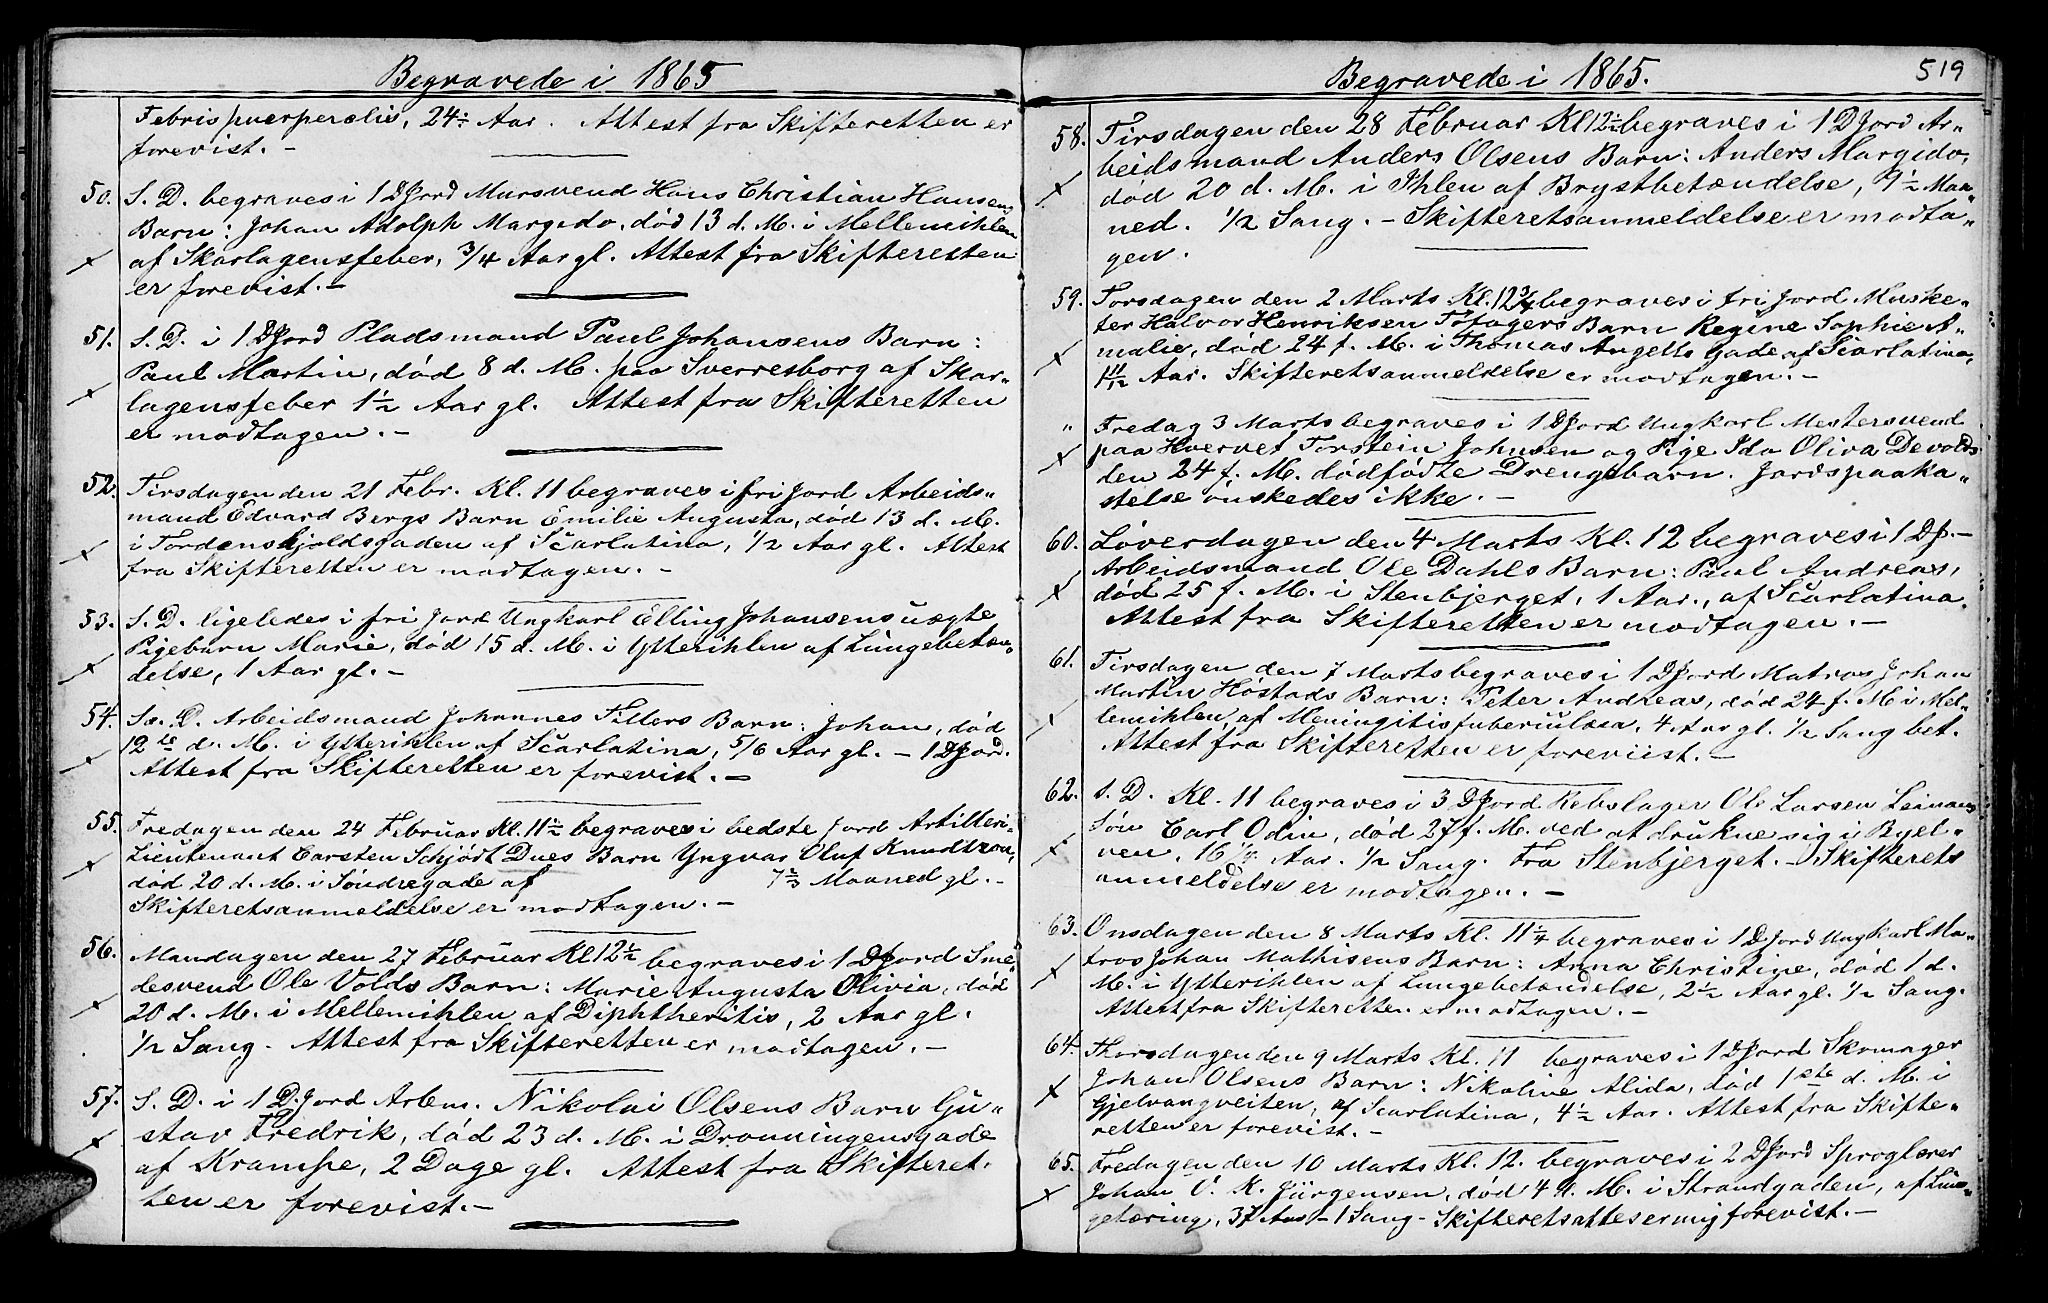 Begravede i 1865
Febris puerperalis, 24 Aar. Attest fra Skifteretten er
forevist. -
50. S. D. begraves i 1 D Jord Mursvend Hans Christian Hansens
Barn: Johan Adolph Margido, død 13 d. M. i Mellemihlen
af Skarlagensfeber, 3/4 Aar gl. Attest fra Skifteretten
er forevist. -
51. S. D. i 1 D Jord Pladsmand Paul Johansens Barn:
Paul Martin, død 8 d. M. paa Sverresborg af Skar-
lagensfeber 1 1/2 Aar gl. Attest fra Skifteretten
er modtagen. -
52. Tirsdagen den 21 Febr. Kl. 11 begraves i fri Jord Arbeids-
mand Edvard Bergs Barn Emilie Augusta, død 13 d. M.
i Tordenskjoldsgaden af Scarlatina, 1/2 Aar gl. Attest
fra Skifteretten er modtagen. -
53. S. D. ligeledes i fri Jord Ungkarl Elling Johansens uægte
Pigebarn Marie, død 15 d. M. i Ytterihlen af Lungebetæn-
delse, 1 Aar gl. -
54. S. D. Arbeidsmand Johannes Tillers Barn: Johan, død
12te d. M. i Ytterihlen af Scarlatina, 5/6 Aar gl. - 1 D Jord.
Attest fra Skifteretten er forevist. -
55. Fredagen den 24 Februar Kl. 11 1/2 begraves i bedste Jord Artilleri-
Lieutenant Carsten Schjødt Dues Barn Yngvar Oluf Knudtzon,
død 20 d. M. i Søndregade af 7 2/3 Maaned gl. -
Skifteretsanmeldelse er modtagen. -
56. Mandagen den 27 Februar Kl 12 1/2 begraves i 1 D Jord Sme-
desvend Ole Volds Barn: Marie Augusta Olivia, død
20 d. M. i Mellemihlen af Diphtheritis, 2 Aar gl.
1/2 Sang - Attest fra Skifteretten er modtagen. -
57. S. D. i 1 D. Jord Arbm. Nikolai Olsens Barn Gu-
stav Fredrik, død 23 d. M. i Dronningensgade
af Krampe, 2 Dage gl. Attest fra Skifteret-
ten er forevist. -
Begravede i 1865.
519
58. Tirsdagen den 28 Februar Kl 12 1/2 begraves i 1 D Jord Ar-
beidsmand Anders Olsens Barn: Anders Margido,
død 20 d. M. i Ihlen af Brystbetændelse, 9 1/2 Maa-
ned. 1/2 Sang. - Skifteretsanmeldelse er modta-
gen.
59. Torsdagen den 2 Marts Kl. 12 3/4 begraves i fri Jord Muske-
ter Halvor Henriksen Tøfagers Barn Regine Sophie A-
malie, død 24 f. M. i Thomas Angells Gade af Scarlatina,
1 11/12 Aar. Skifteretsanmeldelse er modtagen. -
" Fredag 3 Marts begraves i 1 D Jord Ungkarl Mestersvend
paa Hvervet Torstein Johnsen og Pige Ida Oliva Devolds
den 24 f. M. dødfødte Drengebarn. Jordspaaka-
stelse ønskedes ikke. -
60. Løverdagen den 4 Marts Kl. 12 begraves i 1 D J. -
Arbeidsmand Ole Dahls Barn: Paul Andreas,
død 25 f. M. i Stenbjerget, 1 Aar., af Scarlatina.
Attest fra Skifteretten er modtagen. -
61. Tirsdagen den 7 Marts begraves i 1 D Jord Matros Johan
Martin Høstads Barn: Peter Andreas, død 24 f. M. i Mel-
lemihlen, af Meningitis tuberculosa, 4 Aar gl. 1/2 Sang bet.
Attest fra Skifteretten er foreviist. -
62. S. D. Kl. 11 begraves i 3 D Jord Rebslager Ole Larsen Leinans
Søn Carl Odin, død 27 f. M. ved at drukne sig i Byel-
ven, 16 Aar. 1/2 Sang. Fra Stenbjerget. - Skifterets
anmeldelse er modtagen. -
63. Onsdagen den 8 Marts Kl. 11 1/4 begraves i 1 D Jord Ungkarl Ma-
tros Johan Mathisens Barn: Anna Christine, død 1 d.
M. i Ytterihlen af Lungebetændelse, 2 1/2 Aar gl. 1/2 Sang.
Attest fra Skifteretten er modtagen. -
64. Thorsdagen den 9 Marts Kl. 11 begraves i 1 D Jord Skomager
Johan Olsens Barn: Nikoline Alida, død 1ste d. M. i
Gjelvangveiten, af Scarlatina, 4 1/2 Aar. Attest fra Skifte-
retten er forevist. -
65. Fredagen den 10 Marts Kl. 12. begraves i 2 D Jord Sproglærer
Johan V. K. Jürgensen, død 4 d. M. i Strandgaden, af Lun-
getæring, 37 Aar - 1 Sang - Skifteretsattest er mig forevist. -